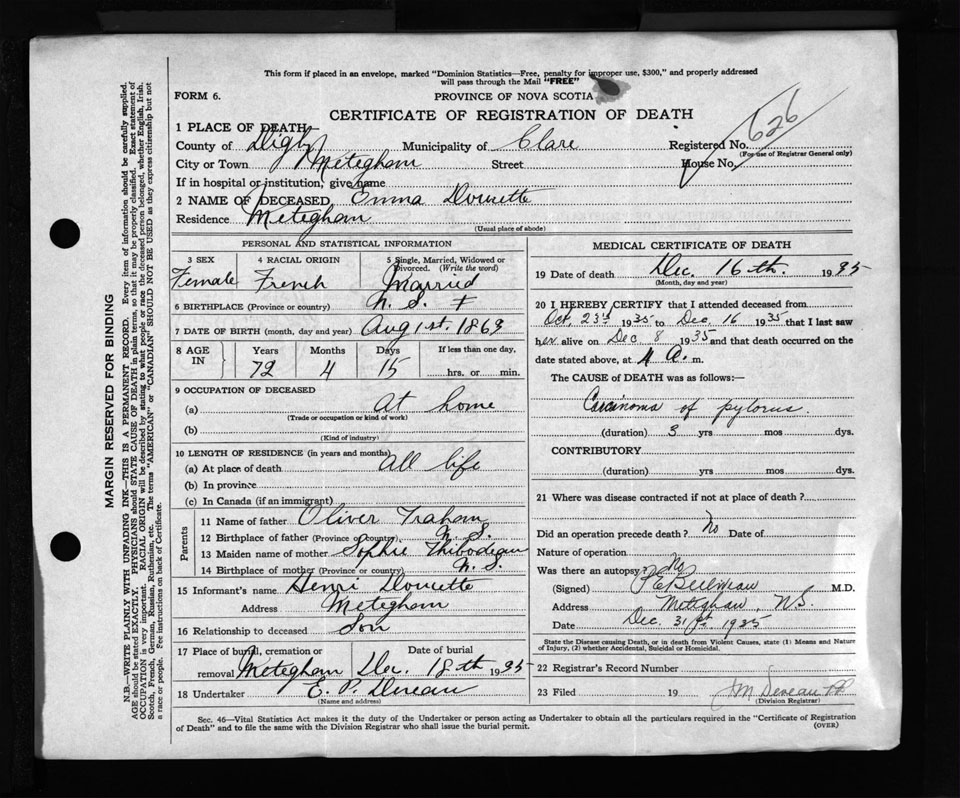 This form if placed in an envelope, marked "Dominion Statistics—Free, penalty for improper use, $300," and properly addressed
will pass through the Mail "FREE"
FORM 6. PROVINCE OF NOVA SCOTIA
CERTIFICATE OF REGISTRATION OF DEATH
626
1 PLACE OF DEATH
County of Digby Municipality of Clare Registered No.
(For use of Registrar General only)
City or Town Meteghan Street House No.
If in hospital or institution, give name
2 NAME OF DECEASED Emma Doucette
Residence Meteghan
(Usual place of abode)
PERSONAL AND STATISTICAL INFORMATION
3 SEX 4 RACIAL ORIGIN 5 Single, Married, Widowed or
Divorced. (Write the word)
Female French Married
6 BIRTHPLACE (Province or country) N. S.
7 DATE OF BIRTH (month, day and year) Aug 1st. 1863
8 AGE IN Years Months Days If less than one day,
72 4 15 hrs. or min.
9 OCCUPATION OF DECEASED
(a) At home
(Trade or occupation or kind of work)
(b)
(Kind of industry)
10 LENGTH OF RESIDENCE (in years and months)
(a) At place of death All life
(b) In province
(c) In Canada (if an immigrant)
Parents
11 Name of father Oliver Traham
12 Birthplace of father (Province or country) N. S.
13 Maiden name of mother Sophie Thibodeau
14 Birthplace of mother (Province or country) N. S.
15 Informant's name Henri Doucette
Address Meteghan
16 Relationship to deceased Son
17 Place of burial, cremation or Date of burial
removal Meteghan Dec. 18th 1935
18 Undertaker E. P. Deveau
(Name and address)
MEDICAL CERTIFICATE OF DEATH
19 Date of death Dec. 16th. 1935
(Month, day and year)
20 I HEREBY CERTIFY that I attended deceased from
Oct, 23rd 1935 to Dec, 16 1935 that I last saw
her alive on Dec 8 1935 and that death occurred on the
date stated above, at 4 a. m.
The CAUSE of DEATH was as follows:—
Carcinoma of pylorus.
(duration) 3 yrs mos dys.
CONTRIBUTORY
(duration) yrs mos dys.
21 Where was disease contracted if not at place of death?
Did an operation precede death? No Date of
Nature of operation
Was there an autopsy? No
(Signed) Belliveau M.D.
Address Meteghan, N.S.
Date Dec. 31st. 1935
State the Disease causing Death, or in death from Violent Causes, state (1) Means and Nature
of Injury, (2) whether Accidental, Suicidal or Homicidal.
22 Registrar's Record Number
23 Filed 19 J M Deveau
(Division Registrar)
Sec. 46—Vital Statistics Act makes it the duty of the Undertaker or person acting as Undertaker to obtain all the particulars required in the "Certificate of Registration
of Death" and to file the same with the Division Registrar who shall issue the burial permit. (OVER)
MARGIN RESERVED FOR BINDING
N.B.—WRITE PLAINLY WITH UNFADING INK—THIS IS A PERMANENT RECORD. Every item of information should be carefully supplied.
AGE should be stated EXACTLY. PHYSICIANS should STATE CAUSE OF DEATH in plain terms, so that it may be properly classified. Exact statement of
OCCUPATION is very important. RACIAL ORIGIN will be described by stating to what people or race the deceased person belonged, whether English, Irish,
Scotch, French, German, Russian, Ruthenian, etc. The terms "AMERICAN" or "CANADIAN" SHOULD NOT BE USED as they express citizenship but not
a race or people. See instructions on back of Certificate.